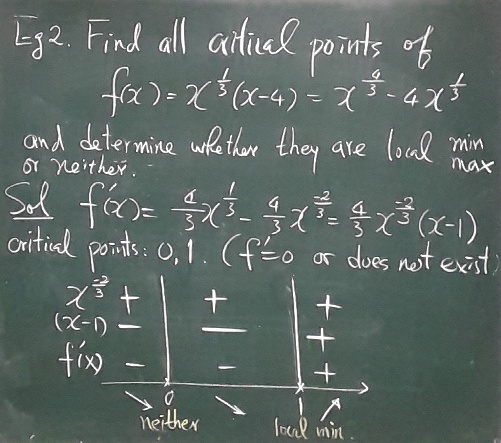 Eg2. Find all critical points of
f(x) = x^{1/3}(x-4) = x^{4/3} - 4x^{1/3}
and determine whether they are local min
or neither. max
Sol f'(x) = 4/3 x^{1/3} - 4/3 x^{-2/3} = 4/3 x^{-2/3}(x-1)
critical points: 0, 1. (f'=0 or does not exist)
x^{-2/3} + + +
(x-1) − − +
f'(x) − − +
0 1
↘ neither ↘ local min. ↗